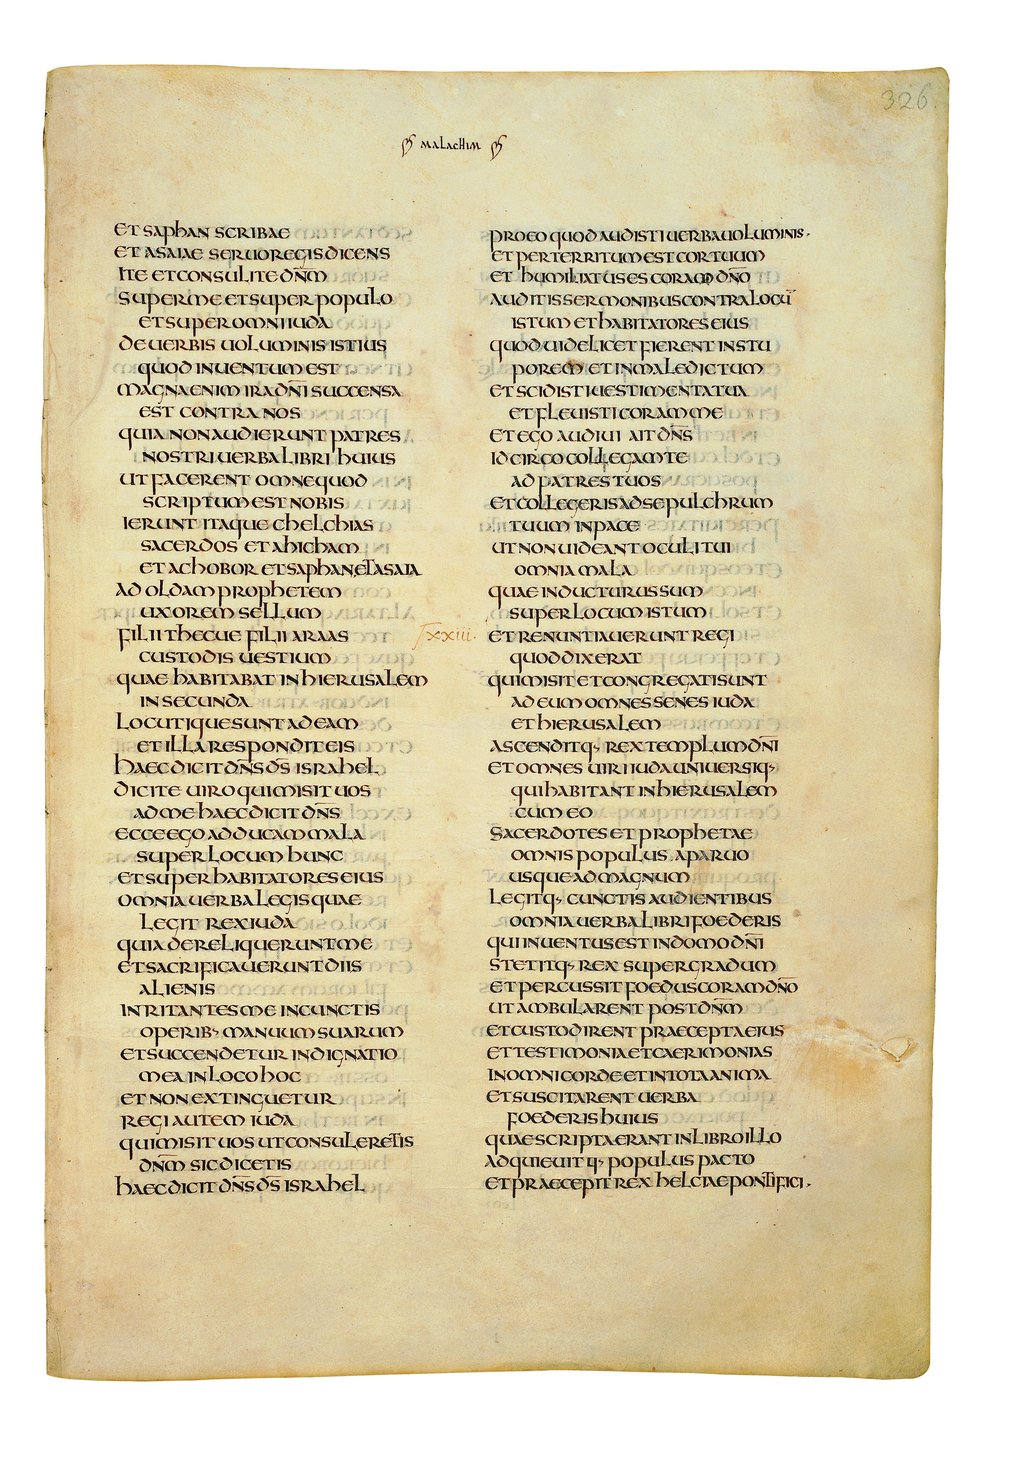 326.
MALACHIM
ET SAPHAN SCRIBAE
ET ASAIAE SERUO REGIS DICENS
ITE ET CONSULITE DN̄M
SUPER ME ET SUPER POPULO
ET SUPER OMNI IUDA
DE UERBIS UOLUMINIS ISTIUS
QUOD INUENTUM EST
MAGNA ENIM IRA DN̄I SUCCENSA
EST CONTRA NOS
QUIA NON AUDIERUNT PATRES
NOSTRI UERBA LIBRI HUIUS
UT FACERENT OMNE QUOD
SCRIPTUM EST NOBIS
IERUNT ITAQUE CHELCHIAS
SACERDOS ET AHICHAM
ET ACHOBOR ET SAPHAN ET ASAIA
AD OLDAM PROPHETEM
UXOREM SELLUM
FILII THECUE FILII ARAAS
CUSTODIS UESTIUM
QUAE HABITABAT IN HIERUSALEM
IN SECUNDA
LOCUTIQUE SUNT AD EAM
ET ILLA RESPONDIT EIS
HAEC DICIT DN̄S D̄S ISRAHEL
DICITE UIRO QUI MISIT UOS
AD ME HAEC DICIT DN̄S
ECCE EGO ADDUCAM MALA
SUPER LOCUM HUNC
ET SUPER HABITATORES EIUS
OMNIA UERBA LEGIS QUAE
LEGIT REX IUDA
QUIA DERELIQUERUNT ME
ET SACRIFICAUERUNT DIIS
ALIENIS
INRITANTES ME IN CUNCTIS
OPERIB· MANUUM SUARUM
ET SUCCENDETUR INDIGNATIO
MEA IN LOCO HOC
ET NON EXTINGUETUR
REGI AUTEM IUDA
QUI MISIT UOS UT CONSULERETIS
DN̄M SIC DICETIS
HAEC DICIT DN̄S D̄S ISRAHEL
PRO EO QUOD AUDISTI UERBA UOLUMINIS·
ET PERTERRITUM EST COR TUUM
ET HUMILIATUS ES CORAM DN̄O
AUDITIS SERMONIBUS CONTRA LOCŪ
ISTUM ET HABITATORES EIUS
QUOD UIDELICET FIERENT IN STU
POREM ET IN MALEDICTUM
ET SCIDISTI UESTIMENTA TUA
ET FLEUISTI CORAM ME
ET EGO AUDIUI AIT DN̄S
IDCIRCO COLLEGAM TE
AD PATRES TUOS
ET COLLEGERIS AD SEPULCHRUM
TUUM IN PACE
UT NON UIDEANT OCULI TUI
OMNIA MALA
QUAE INDUCTURUS SUM
SUPER LOCUM ISTUM
XXIII· ET RENUNTIAUERUNT REGI
QUOD DIXERAT
QUI MISIT ET CONGREGATI SUNT
AD EUM OMNES SENES IUDA
ET HIERUSALEM
ASCENDITQ· REX TEMPLUM DN̄I
ET OMNES UIRI IUDA UNIUERSIQ·
QUI HABITANT IN HIERUSALEM
CUM EO
SACERDOTES ET PROPHETAE
OMNIS POPULUS A PARUO
USQUE AD MAGNUM
LEGITQ· CUNCTIS AUDIENTIBUS
OMNIA UERBA LIBRI FOEDERIS
QUI INUENTUS EST IN DOMO DN̄I
STETITQ· REX SUPER GRADUM
ET PERCUSSIT FOEDUS CORAM DN̄O
UT AMBULARENT POST DN̄M
ET CUSTODIRENT PRAECEPTA EIUS
ET TESTIMONIA ET CAERIMONIAS
IN OMNI CORDE ET IN TOTA ANIMA
ET SUSCITARENT UERBA
FOEDERIS HUIUS
QUAE SCRIPTA ERANT IN LIBRO ILLO
ADQUIEUITQ· POPULUS PACTO
ET PRAECEPIT REX HELCIAE PONTIFICI·